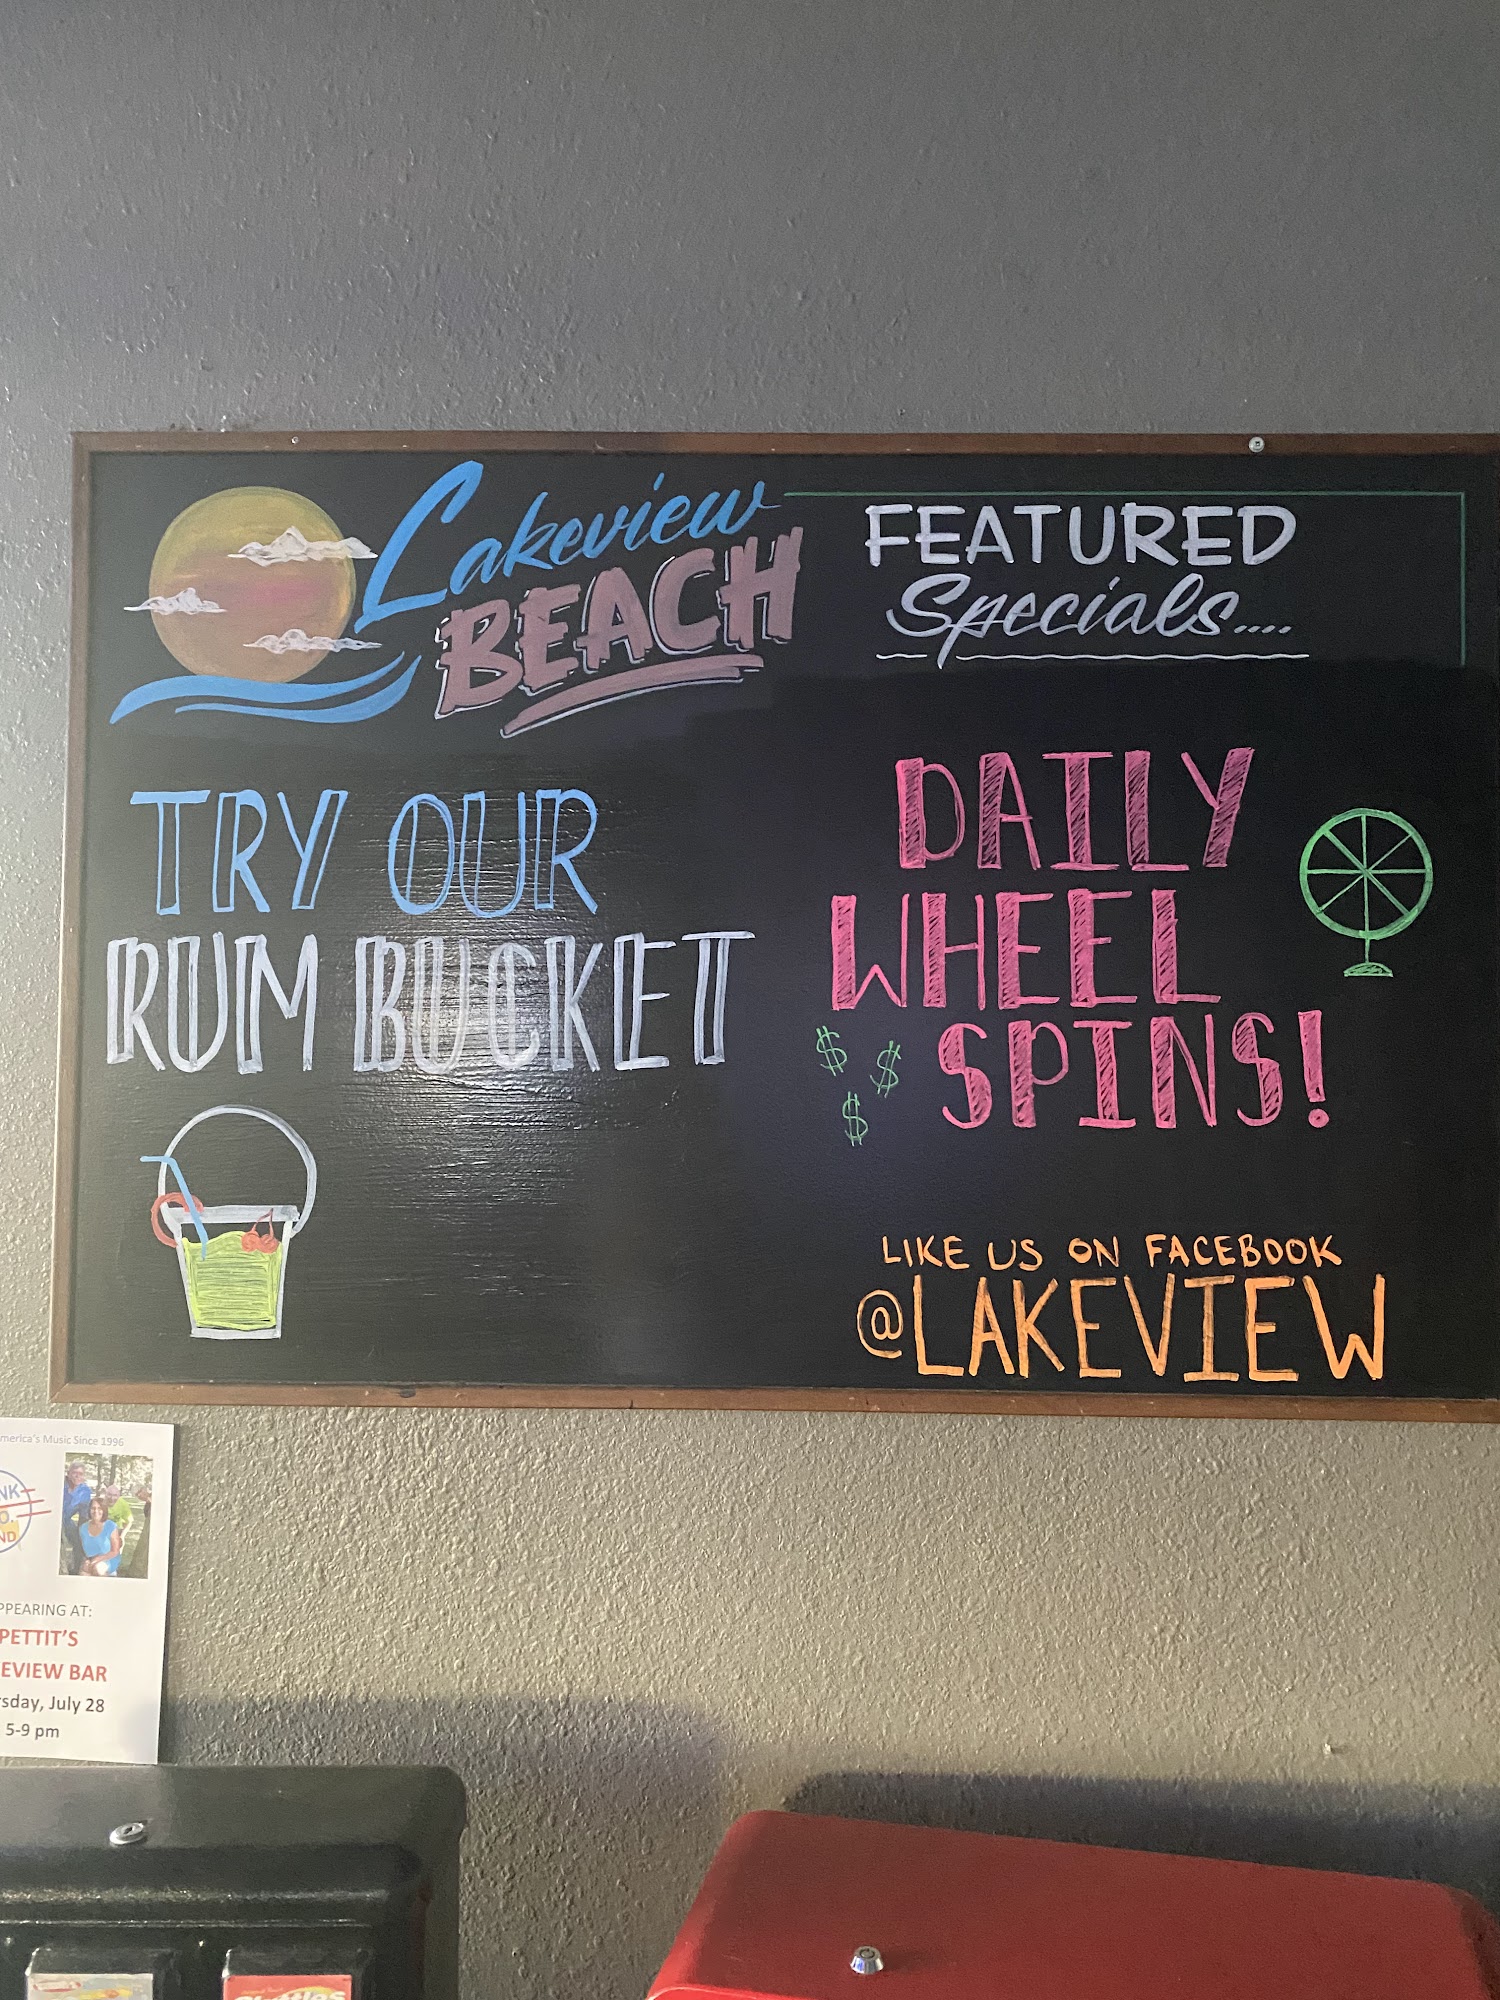 Lakeview
BEACH
TRY OUR
RUM BUCKET
FEATURED
Specials....
DAILY
WHEEL
$ $ $
SPINS!
LIKE US ON FACEBOOK
@LAKEVIEW
merica's Music Since 1996
NK
O.
ND
PPEARING AT:
PETTIT'S
EVIEW BAR
rsday, July 28
5-9 pm
Skittles